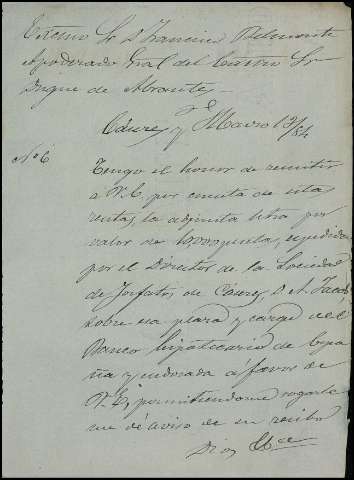 Excmo Sr D Francisco Belmonte
Apoderado Gral del Excmo Sr
Duque de Abrantes
Cáceres y Marzo 13/84
Nº 6
Tengo el honor de remitir
a V.E. por cuenta de estas
rentas, la adjunta letra por
valor de 10000 pesetas, expedida
por el Director de la Sociedad
de Fosfatos de Cáceres, D. A.
sobre esa plaza y cargo del
Banco hipotecario de Espa
ña y endosada á favor de
V.E, permitiendome rogarle
me dé aviso de su recibo
Dios &ce